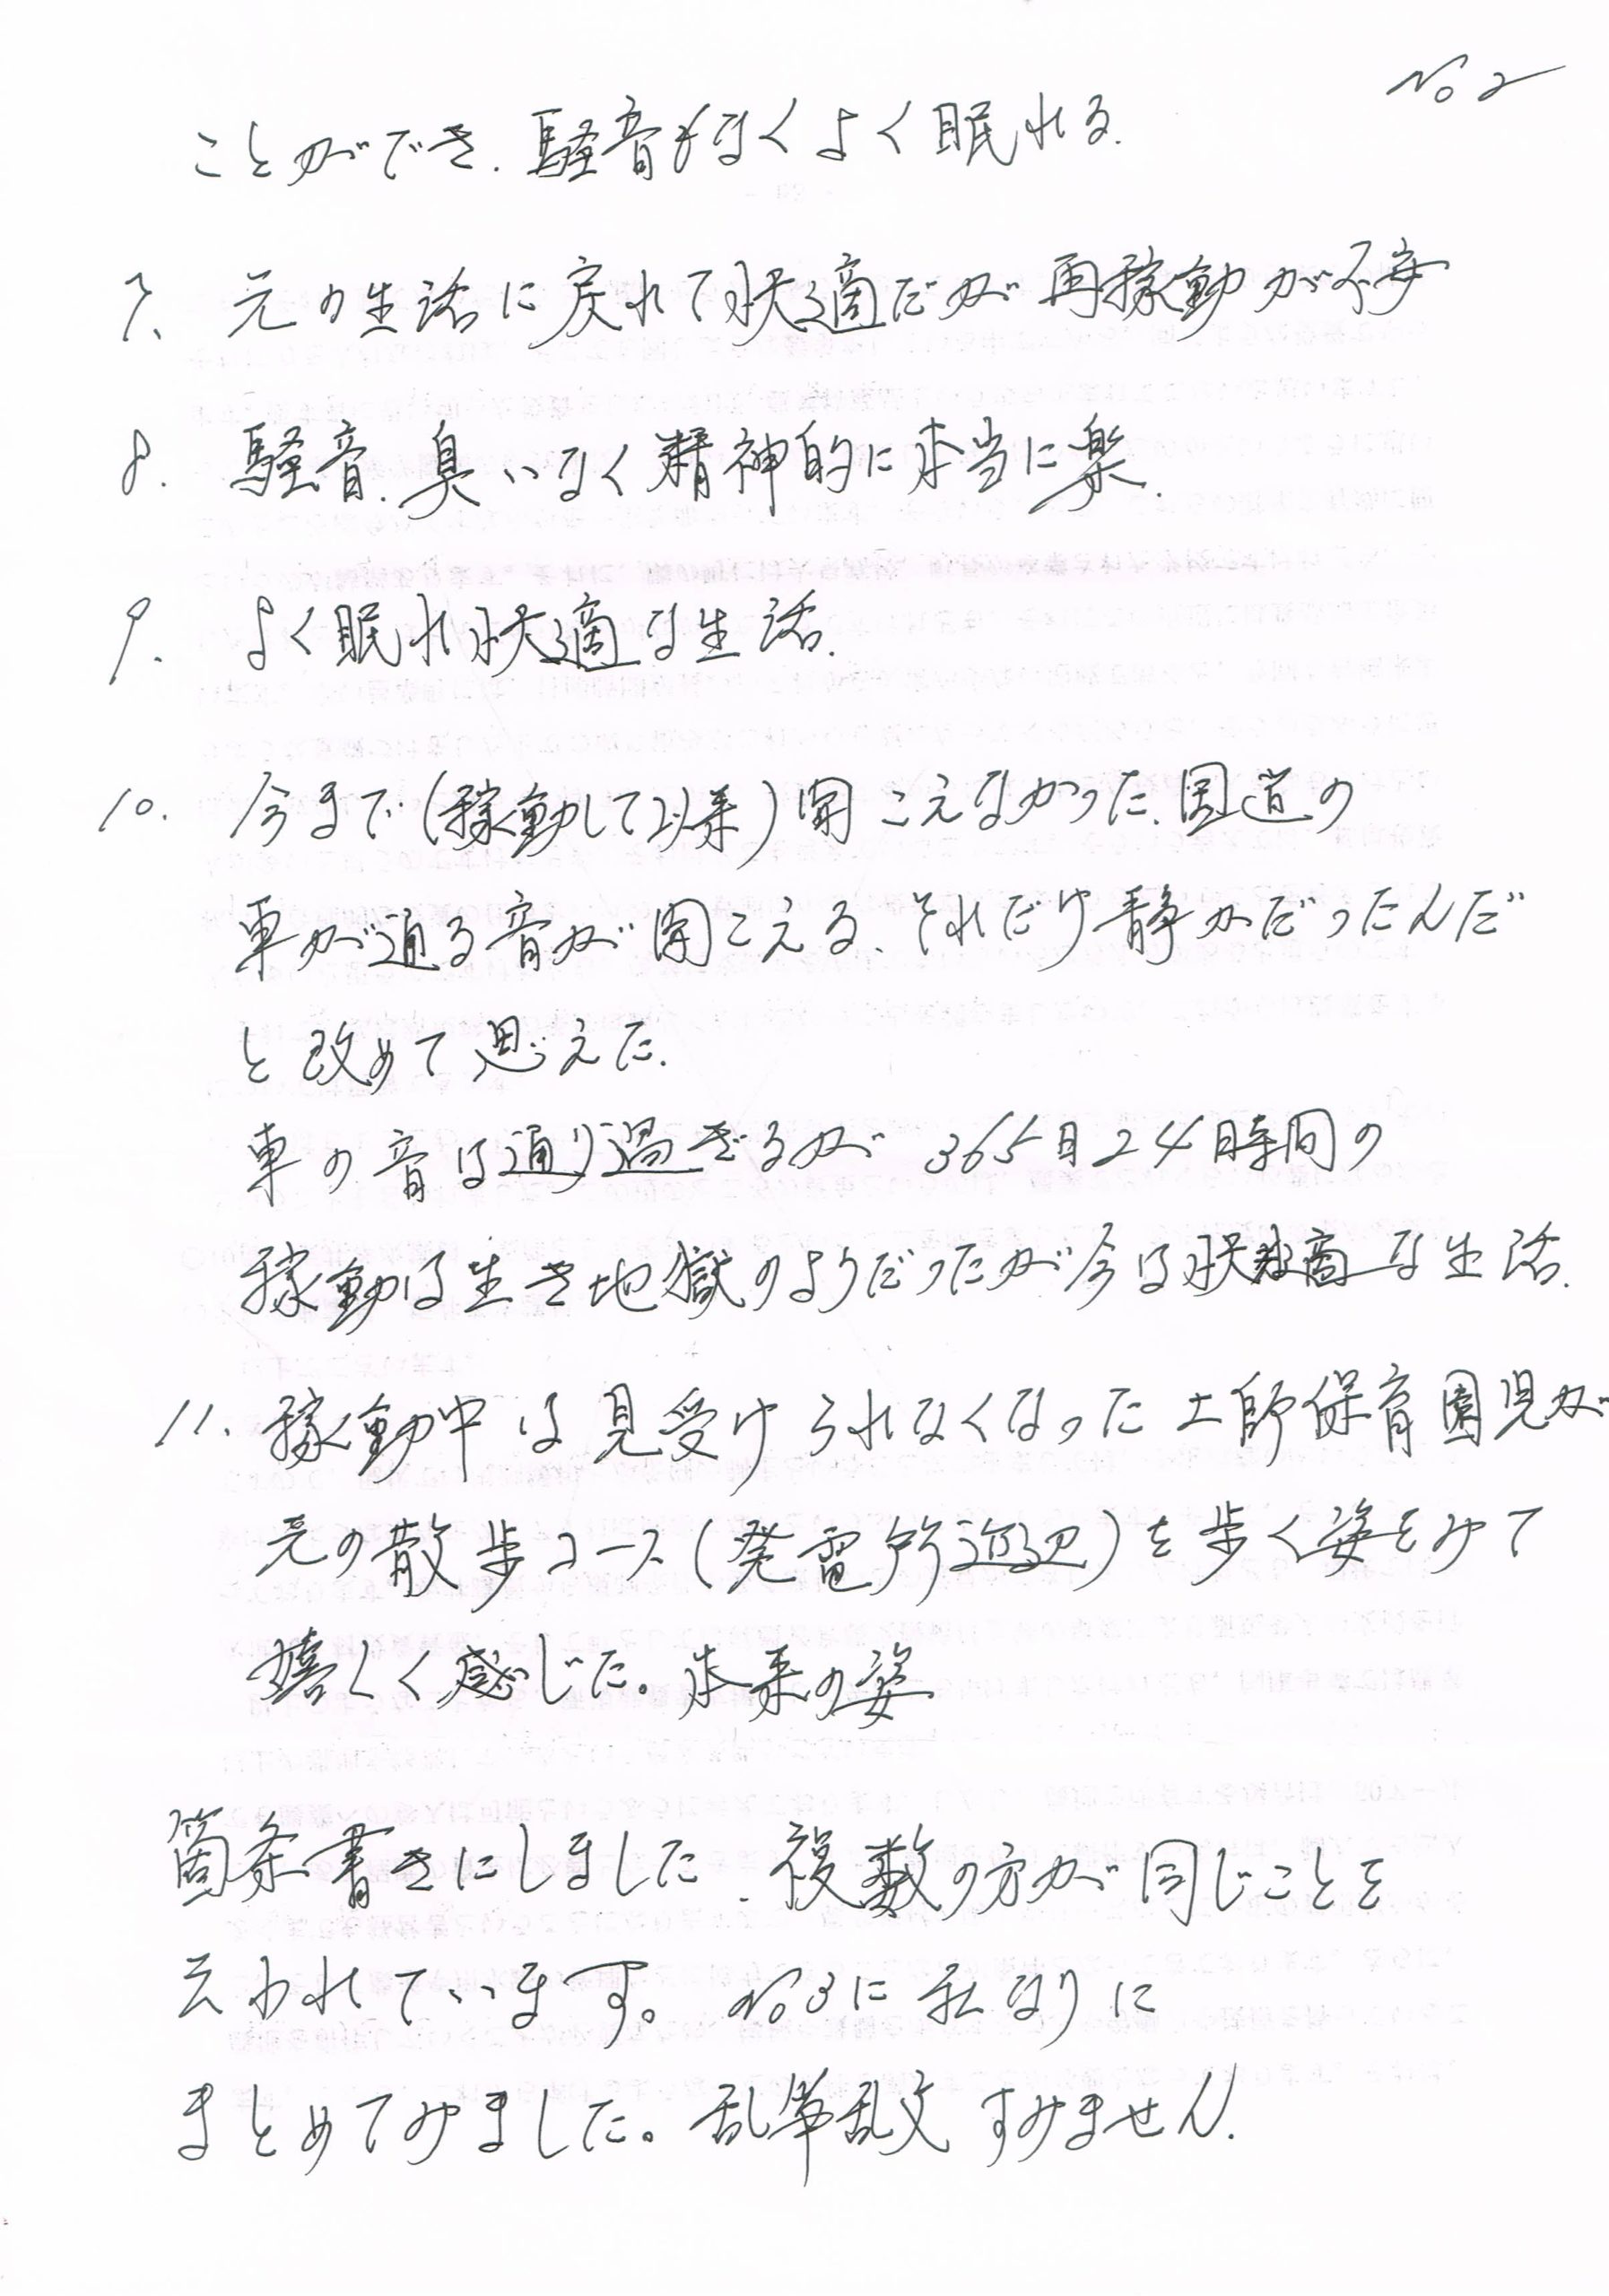 No2
ことができ、騒音もなくよく眠れる.
7、元の生活に戻れて快適だが再稼動が不安
8. 騒音、臭いなく精神的に本当に楽.
9. よく眠れ快適な生活.
10. 今まで(稼動して以来)聞こえなかった、国道の
車が通る音が聞こえる、それだけ静かだったんだ
と改めて思えた.
車の音は通り過ぎるが365日24時間の
稼動は生き地獄のようだったが今は快適な生活.
11. 稼動中は見受けられなくなった土師保育園児が
元の散歩コース(発電所辺)を歩く姿をみて
嬉しく感じた。本来の姿
箇条書きにしました、複数の方が同じことを
云われています。No3に私なりに
まとめてみました。乱筆乱文すみません.